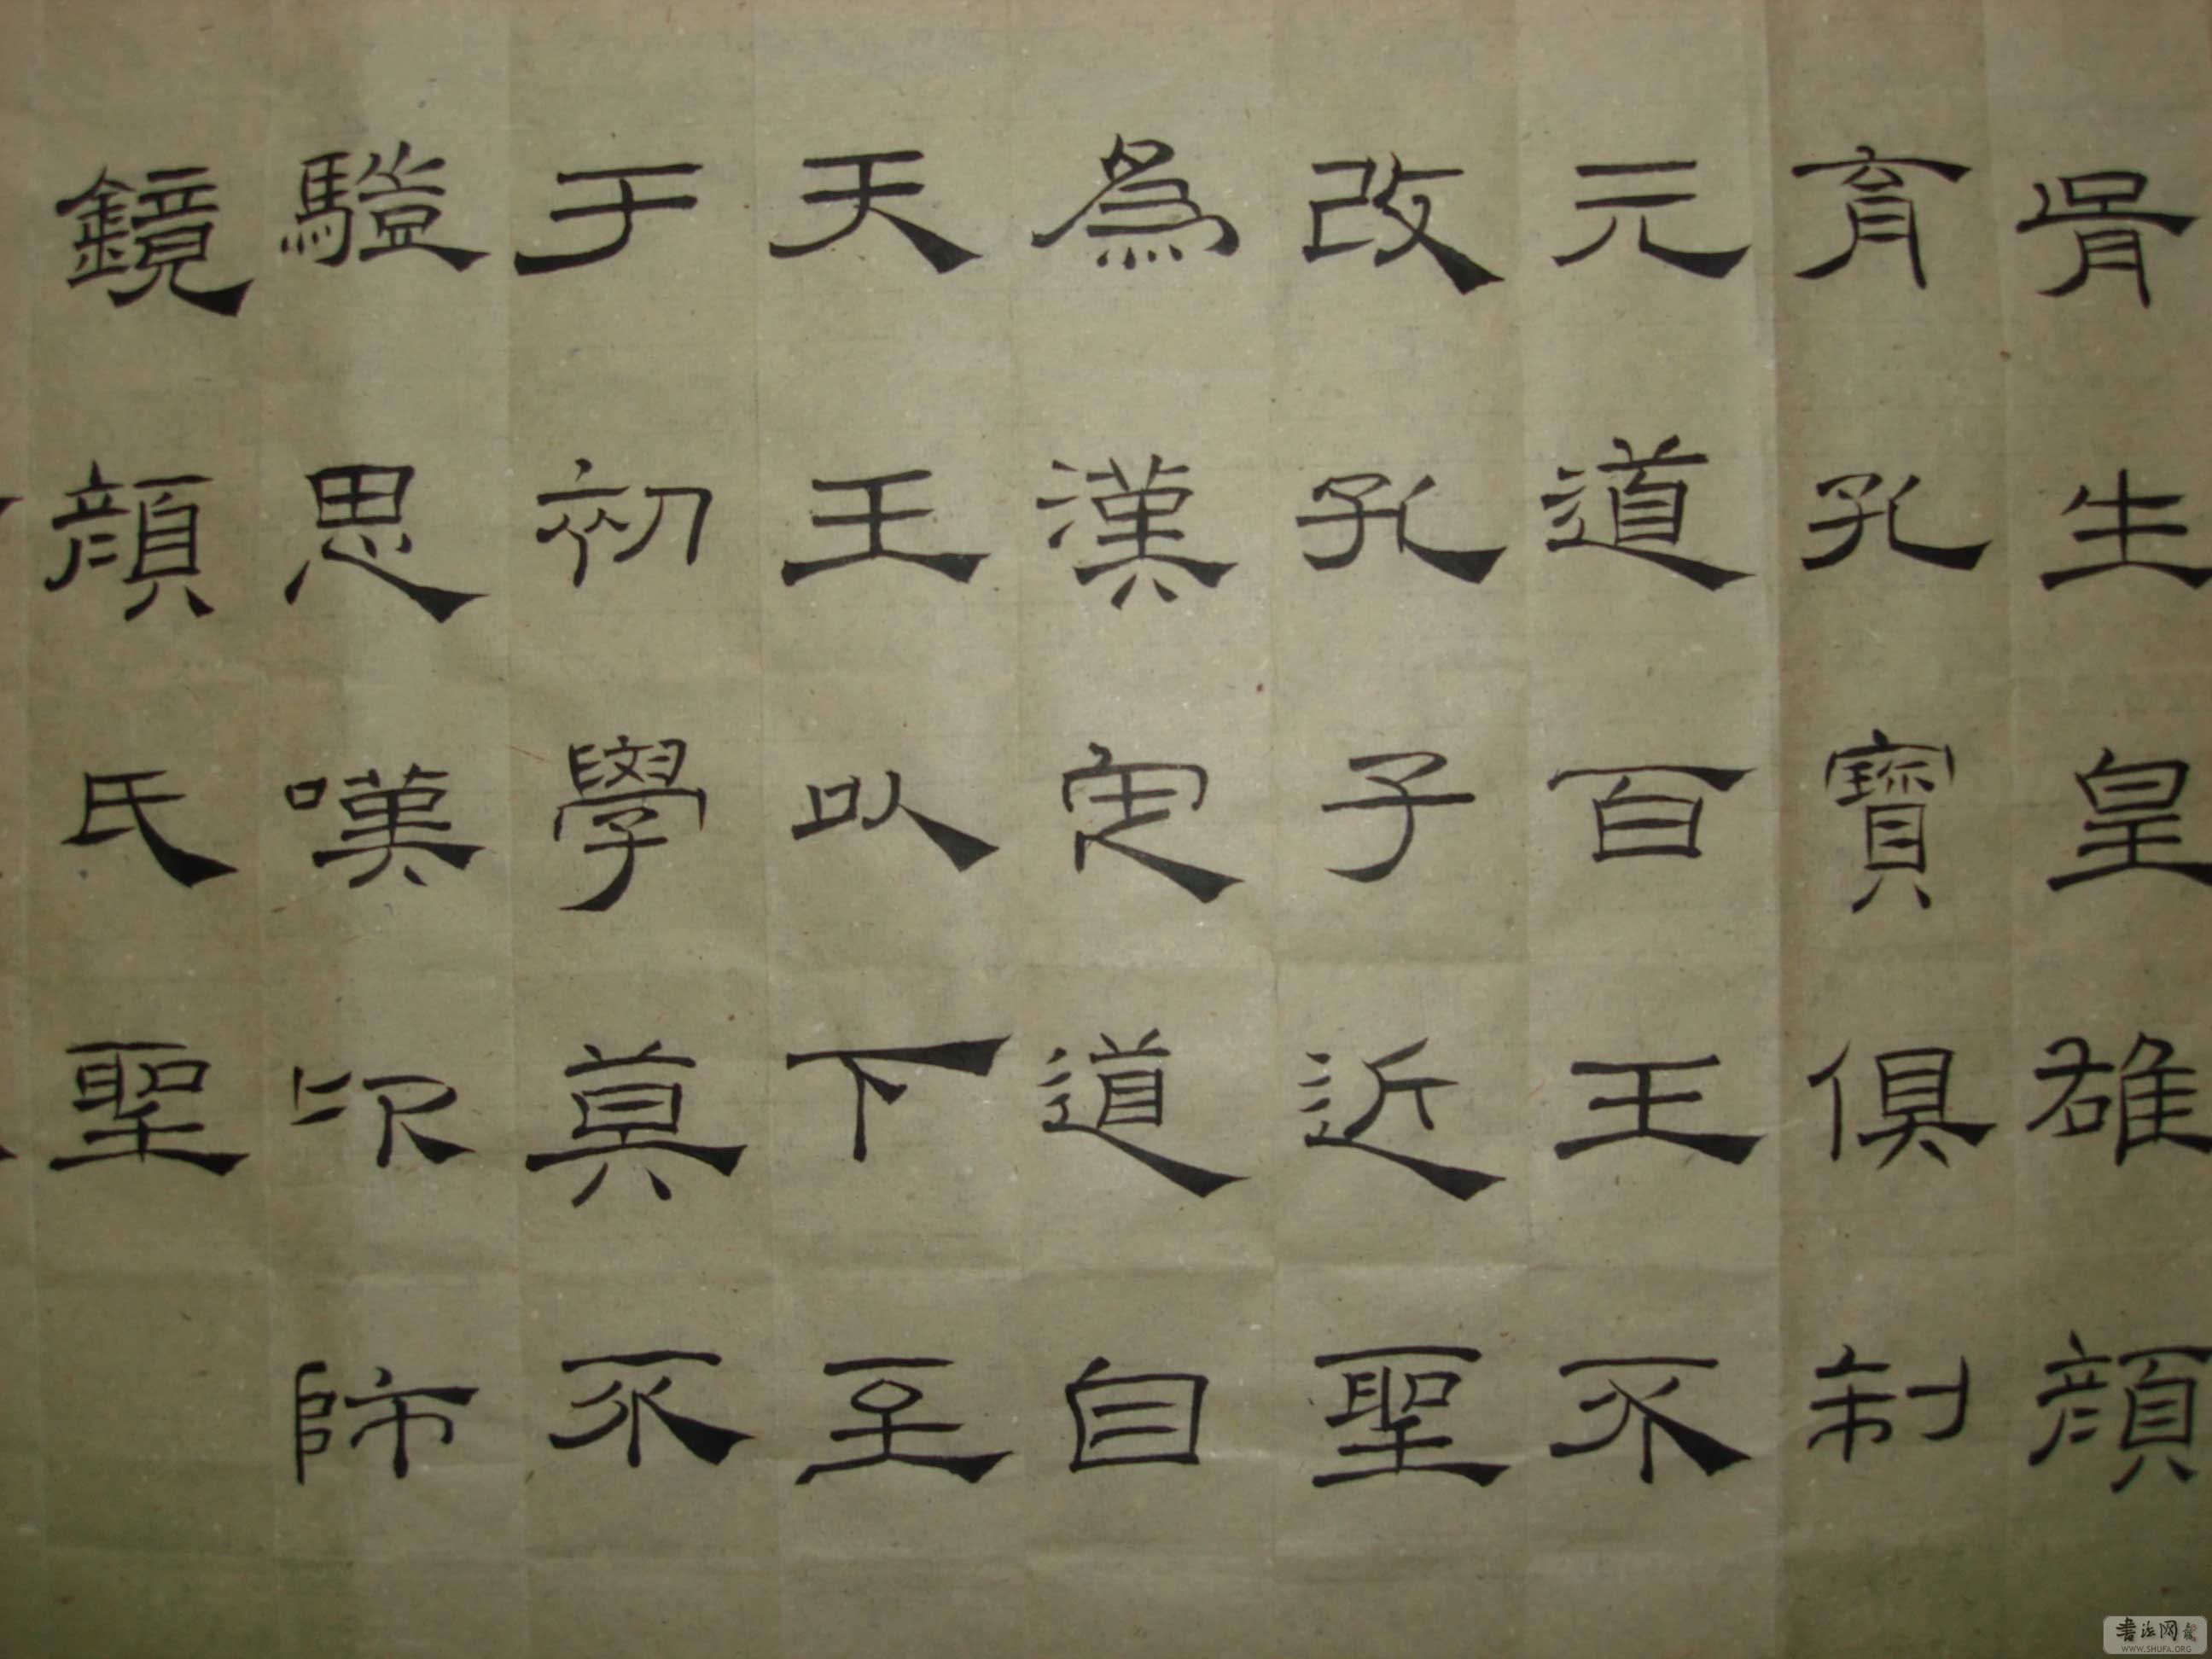 胥生皇雄顏
育孔寶俱制
元道百王不
改孔子近聖
為漢定道自
天王以下至
于初學莫不
驥思嘆卬師
鏡顏氏聖
书法网
WWW.SHUFA.ORG